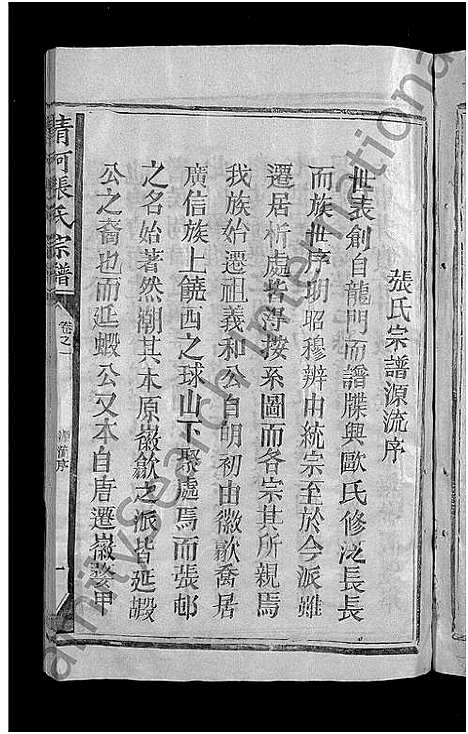 張氏宗譜源流序
世表創自龍門而譜牒興歐氏修泛長長
而族世序明昭穆辨由統宗至於今派雖
遷居析處皆得按系圖而各宗其所親焉
我族始遷祖義和公自明初由徽歙喬居
廣信族上饒西之球山下聚處焉而張邨
之名始著然溯其木原徽歙之派皆延嘏
公之裔也而延蝦公又本自唐遷徽婺甲
清河張氏宗譜
卷之一
源流序
一
familysearch international